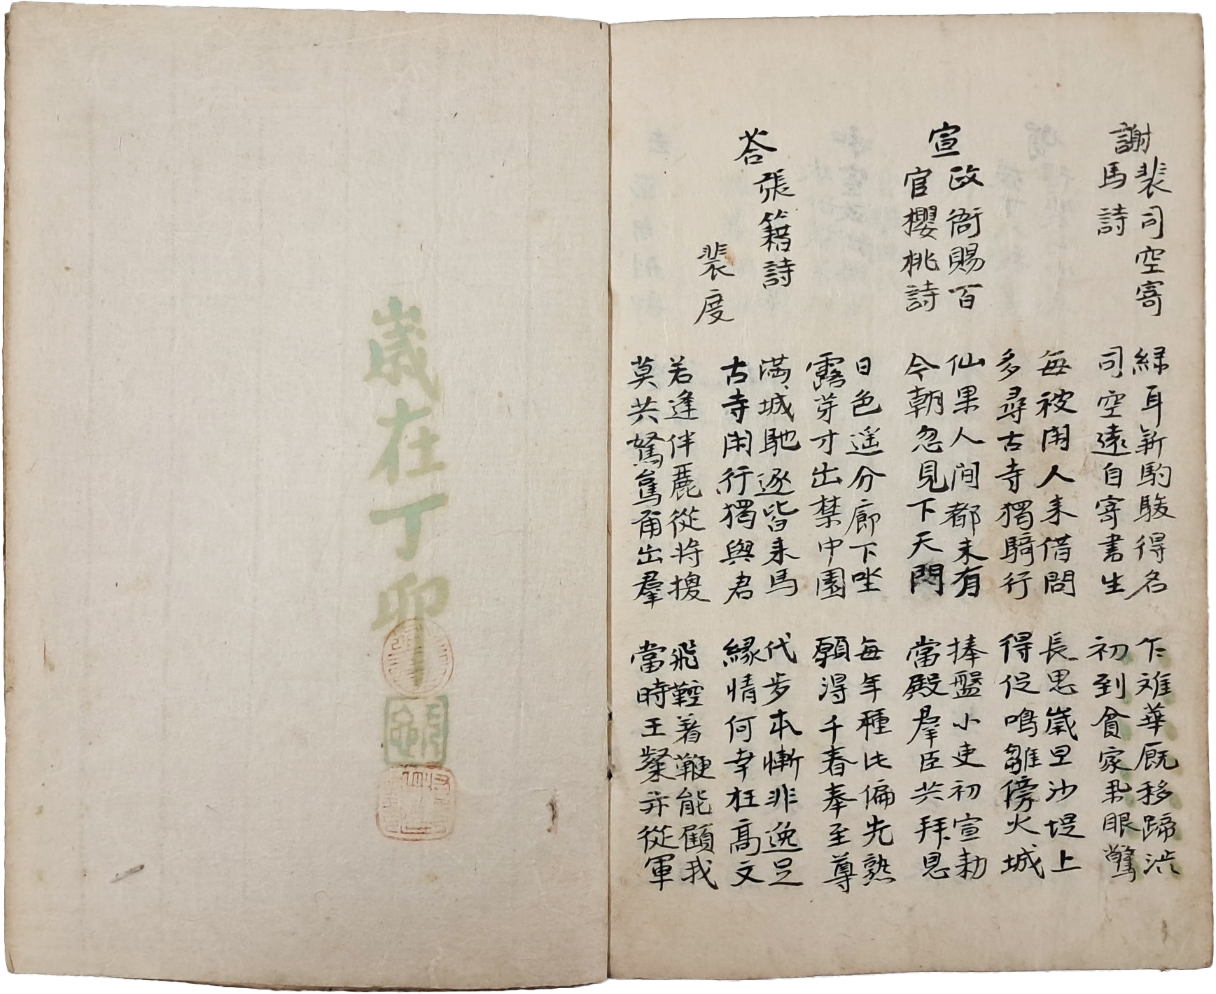 謝裴司空寄
馬詩
綠耳新駒駿得名
司空遠自寄書生
乍難華厩移蹄澁
初到貧家舉眼驚
每被閑人来借問
多尋古寺獨騎行
長思歲旦沙堤上
得促鳴雛傍火城
宣政衙賜百
官櫻桃詩
仙果人間都未有
今朝忽見下天門
捧盤小吏初宣勑
當殿羣臣共拜恩
日色遥分廊下坐
露芽才出禁中園
每年種此偏先熟
願得千春奉至尊
荅張籍詩
裴度
滿城馳逐皆求馬
古寺閑行獨與君
代步本慚非逸足
緣情何幸枉高文
若逢伴麗從將換
莫共駑駘角出羣
飛鞚著鞭能顧我
當時王粲亦從軍
歲在丁卯